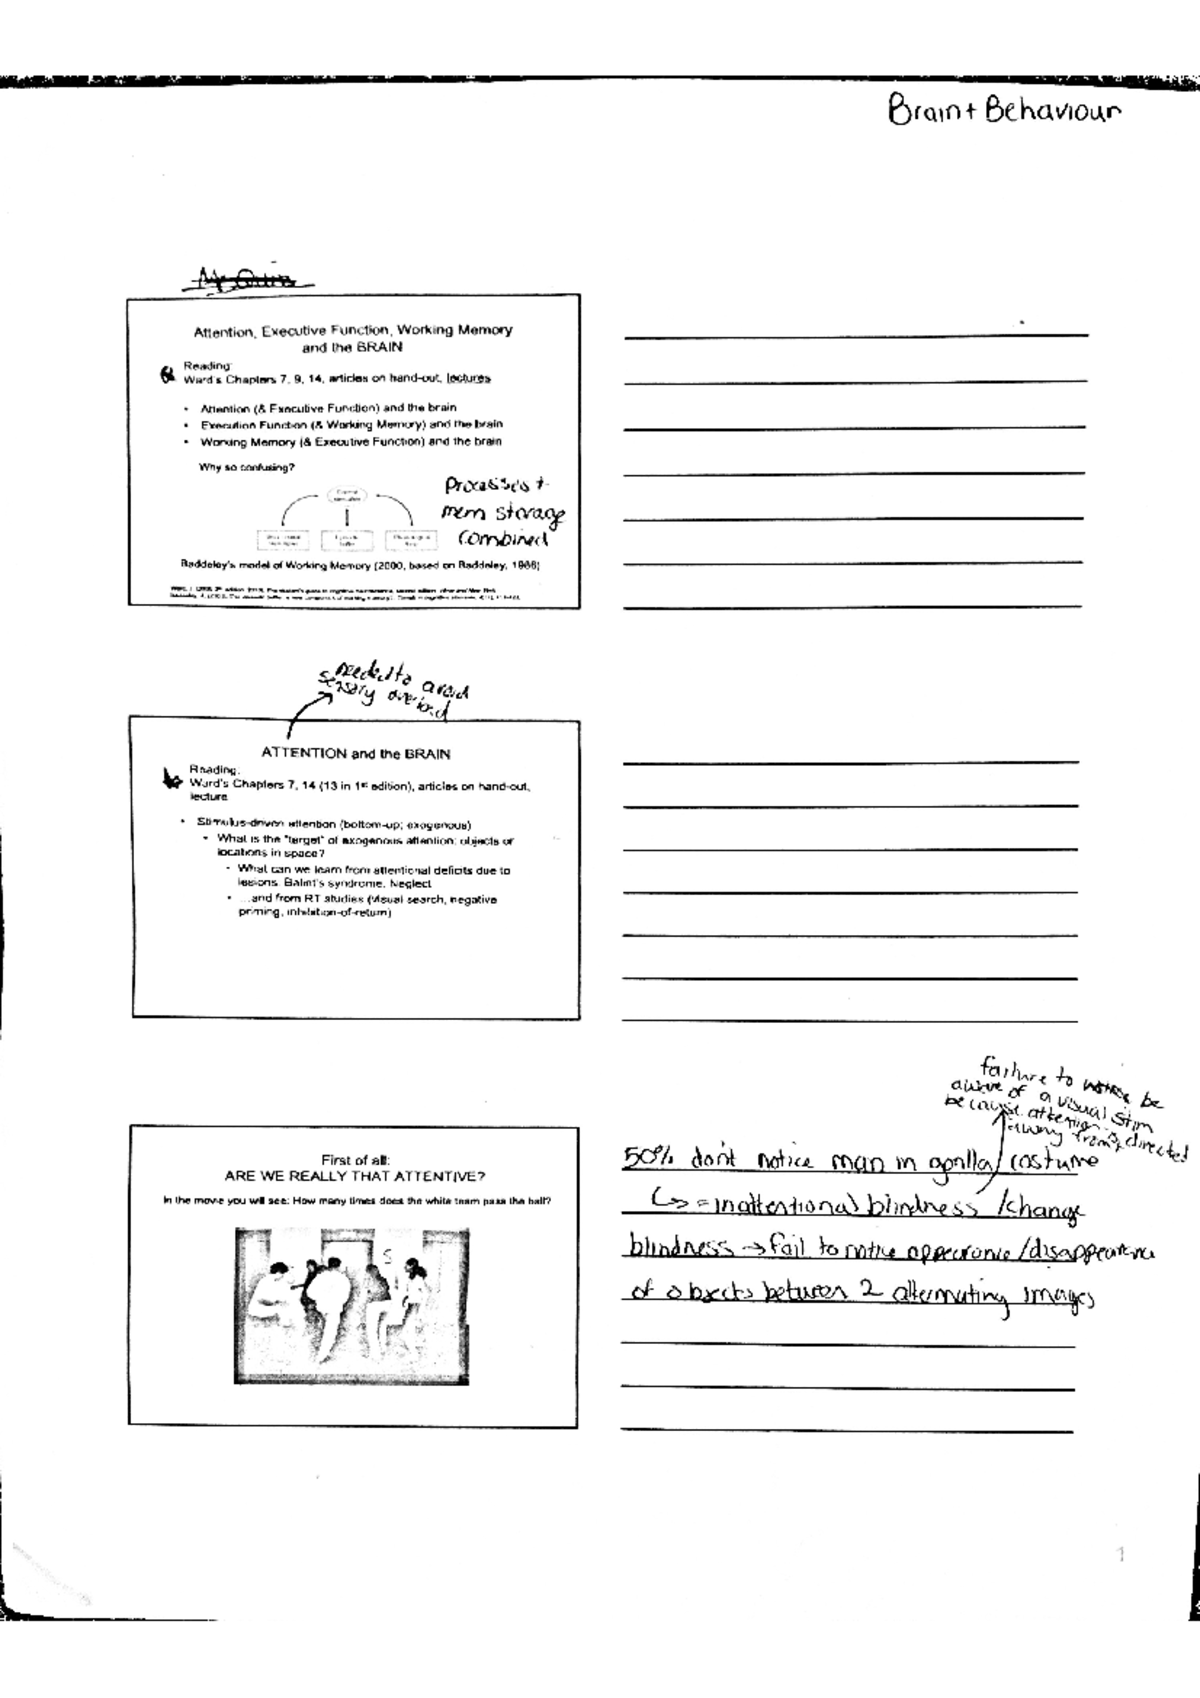 Brain + Behaviour
Attention, Executive Function, Working Memory
and the BRAIN
Reading:
Ward's Chapters 7, 9, 14, articles on hand-out, lectures
• Attention (& Executive Function) and the brain
• Execution Function (& Working Memory) and the brain
• Working Memory (& Executive Function) and the brain
Why so confusing?
Processes +
mem storage
combined
Baddeley's model of Working Memory (2000, based on Baddeley, 1986)
needed to avoid
sensory overload
ATTENTION and the BRAIN
Reading:
Ward's Chapters 7, 14 (13 in 1st edition), articles on hand-out,
lecture
• Stimulus-driven attention (bottom-up; exogenous)
• What is the "target" of exogenous attention: objects or
locations in space?
• What can we learn from attentional deficits due to
lesions: Balint's syndrome, Neglect
• ...and from RT studies (visual search, negative
priming, inhibition-of-return)
failure to be
aware of a visual stim
because attention is directed
away from
First of all:
ARE WE REALLY THAT ATTENTIVE?
In the movie you will see: How many times does the white team pass the ball?
50% don't notice man in gorilla costume
↳ = inattentional blindness / change
blindness → fail to notice appearance/disappearance
of objects between 2 alternating images
1